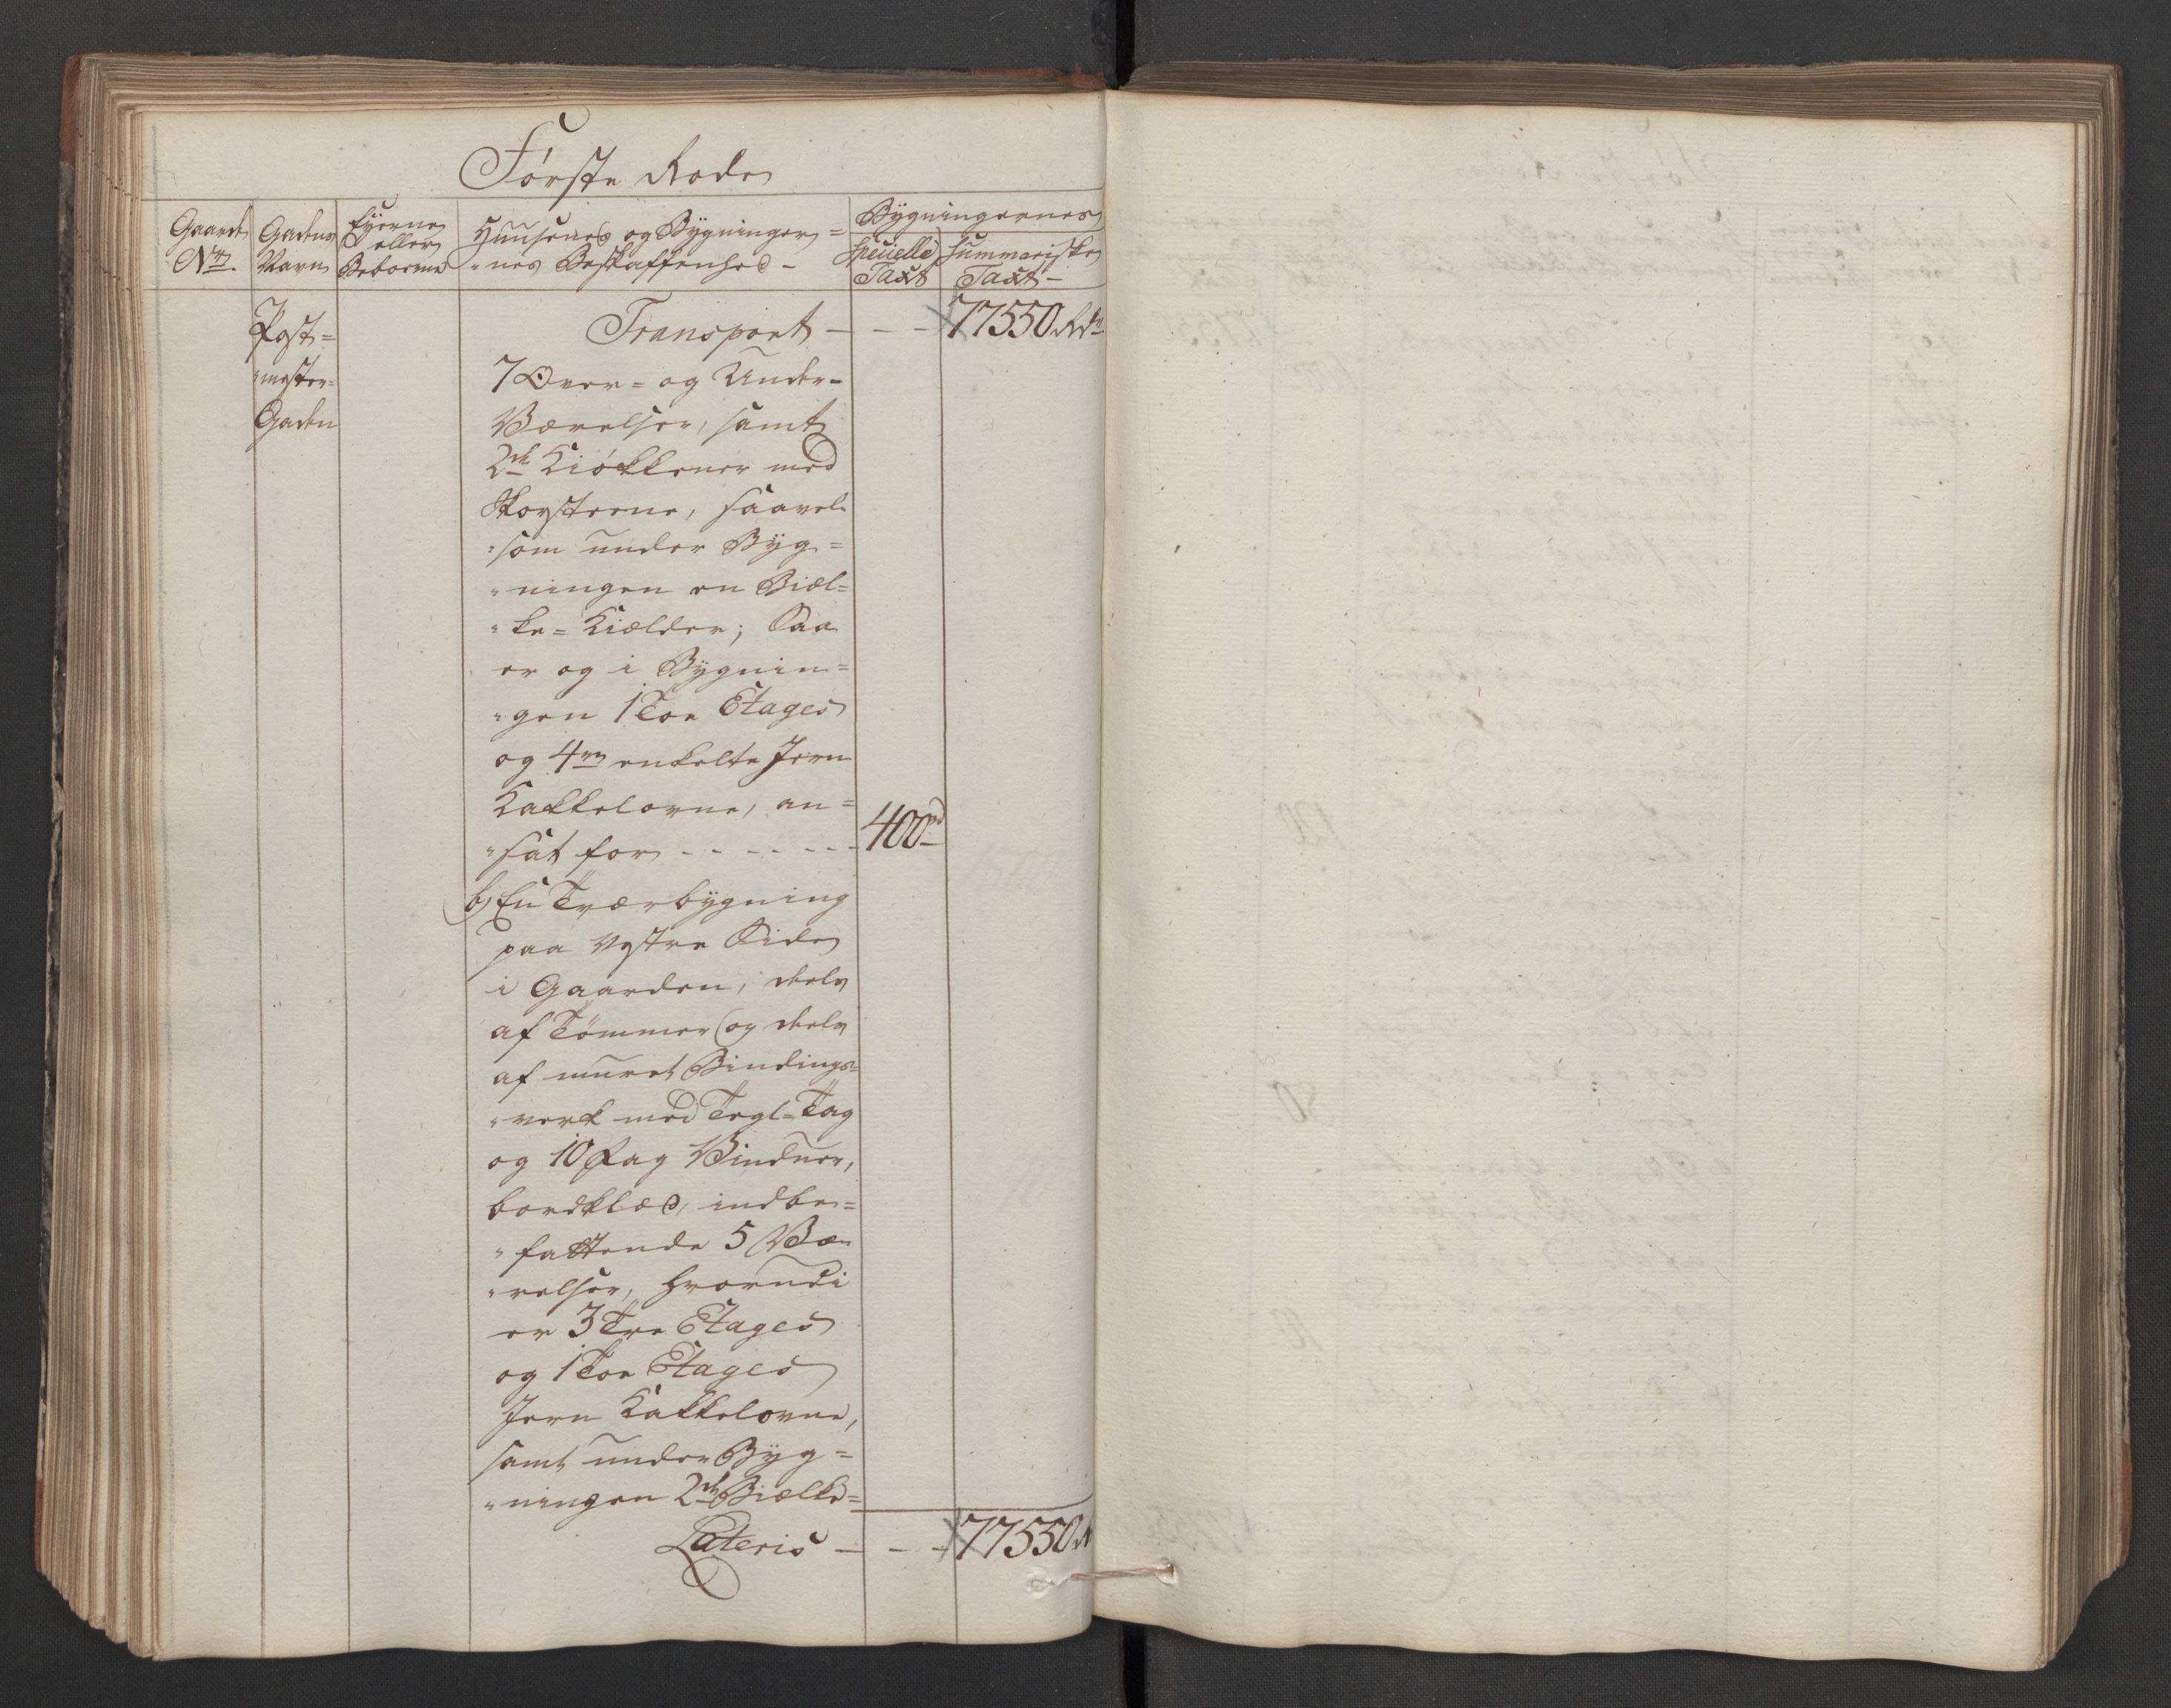 Første Rode
Gaards Nr.
Gadens Navn
Eyerne eller Beboerne
Huusenes og Bygninger=
"nes Beskaffenhed -
Bygningernes
Specielle Taxt
Summariske Taxt -
Post=
"mester=
Gaden
Transport - - - 77550 Rdr
7 Over= og Under-
Værelser, samt
2de Kiökkener med
Skorsteene, saavel
"som under Byg=
"ningen en Biæl=
"ke= Kielder; Saa
er og i Bygnin=
"gen 1 Toe Etages
og 4re enkelte Jern
Kakkelovne, an=
"sat for - - - - - - 400rd
b) En Tværbygning
paa vestre Side
i Gaarden, deels
af Tömmer og deels
af muret Bindings=
"verk med Tegl=Tag
og 10 Fag Vinduer,
bordklæd, indbe=
"fattende 5 Væ
"relser, hvorudi
er 3 Tre Etages
og 1 Toe Etages
Jern Kakkelovne,
samt under Byg=
"ningen 2de Biælke=
Lateris - - - 77550 R